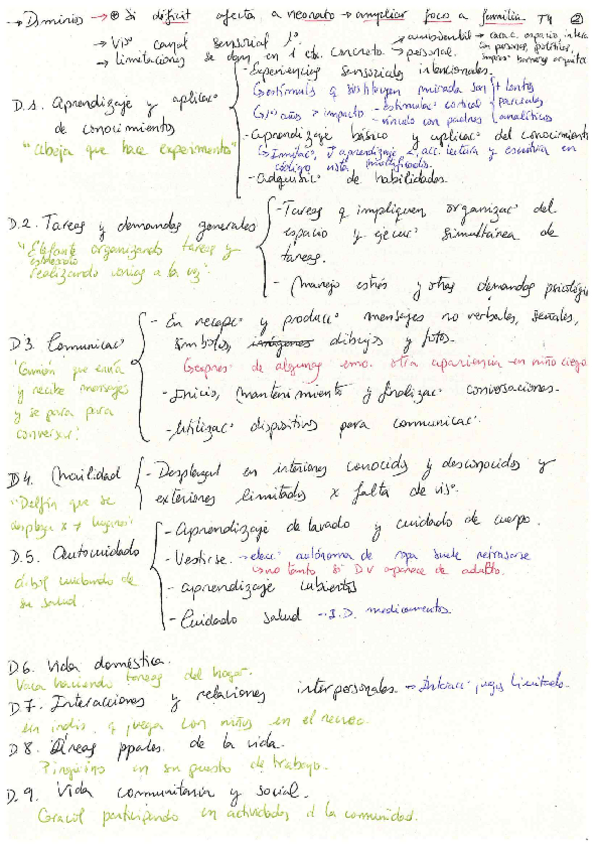 → Dominios → ⊕ Si déficit afecta a neonato → ampliar foco a familia. T4 ②
→ Viso canal sensorial 1º
→ limitaciones se dan en 1 ctx. concreto → ambiental → carac. espacio, interac
con personas, políticas,
→ personal.
D.1. Aprendizaje y aplicac°
de conocimientos
"Abeja que hace experimentos"
- Experiencias sensoriales intencionales.
↳ estímulos q sustituyen mirada son + lentos
parciales
analíticos
↳ 1ºˢ años > impacto - estimulac cortical
- vínculo con padres
- Aprendizaje básico y aplicac° del conocimiento
↳ Imitac°, aprendizaje, acc. lectura y escritura en
código
- Adquisic° de habilidades.
D.2. Tareas y demandas generales
"Elefante organizando tareas y
realizando varias a la vez".
- Tareas q impliquen organizac° del
espacio y ejecuc° simultánea de
tareas.
- Manejo estrés y otras demandas psicológic
D3. Comunicac°
"Camión que envía
y recibe mensajes
y se para para
conversar".
- En recepc° y producc° mensajes no verbales, señales,
símbolos, imágenes dibujos y fotos.
↳ expres° de algunas emo. otra apariencia en niño ciego
- Inicio, mantenimiento y finalizac° conversaciones.
- Utilizac° dispositivos para comunicac°.
D4. Movilidad
"Delfín que se
desplaza x ≠ lugares"
- Desplazat en interiores conocidos y desconocidos y
exteriores limitados x falta de vis°.
D.5. Autocuidado
árbol cuidando de
su salud.
- Aprendizaje de lavado y cuidado de cuerpo.
- Vestirse. → elecc° autónoma de ropa suele retrasarse
no tanto si DV aparece de adulto.
- aprendizaje cubiertos
- Cuidado salud → I.D. medicamentos.
D6. Vida doméstica.
Vaca haciendo tareas del hogar.
D7. Interacciones y relaciones interpersonales. → Interacc°, juego limitado.
un indio q juega con niños en el recreo.
D8. Áreas ppales. de la vida.
Pingüino en su puesto de trabajo.
D.9. Vida comunitaria y social.
Caracol participando en actividades d la comunidad.